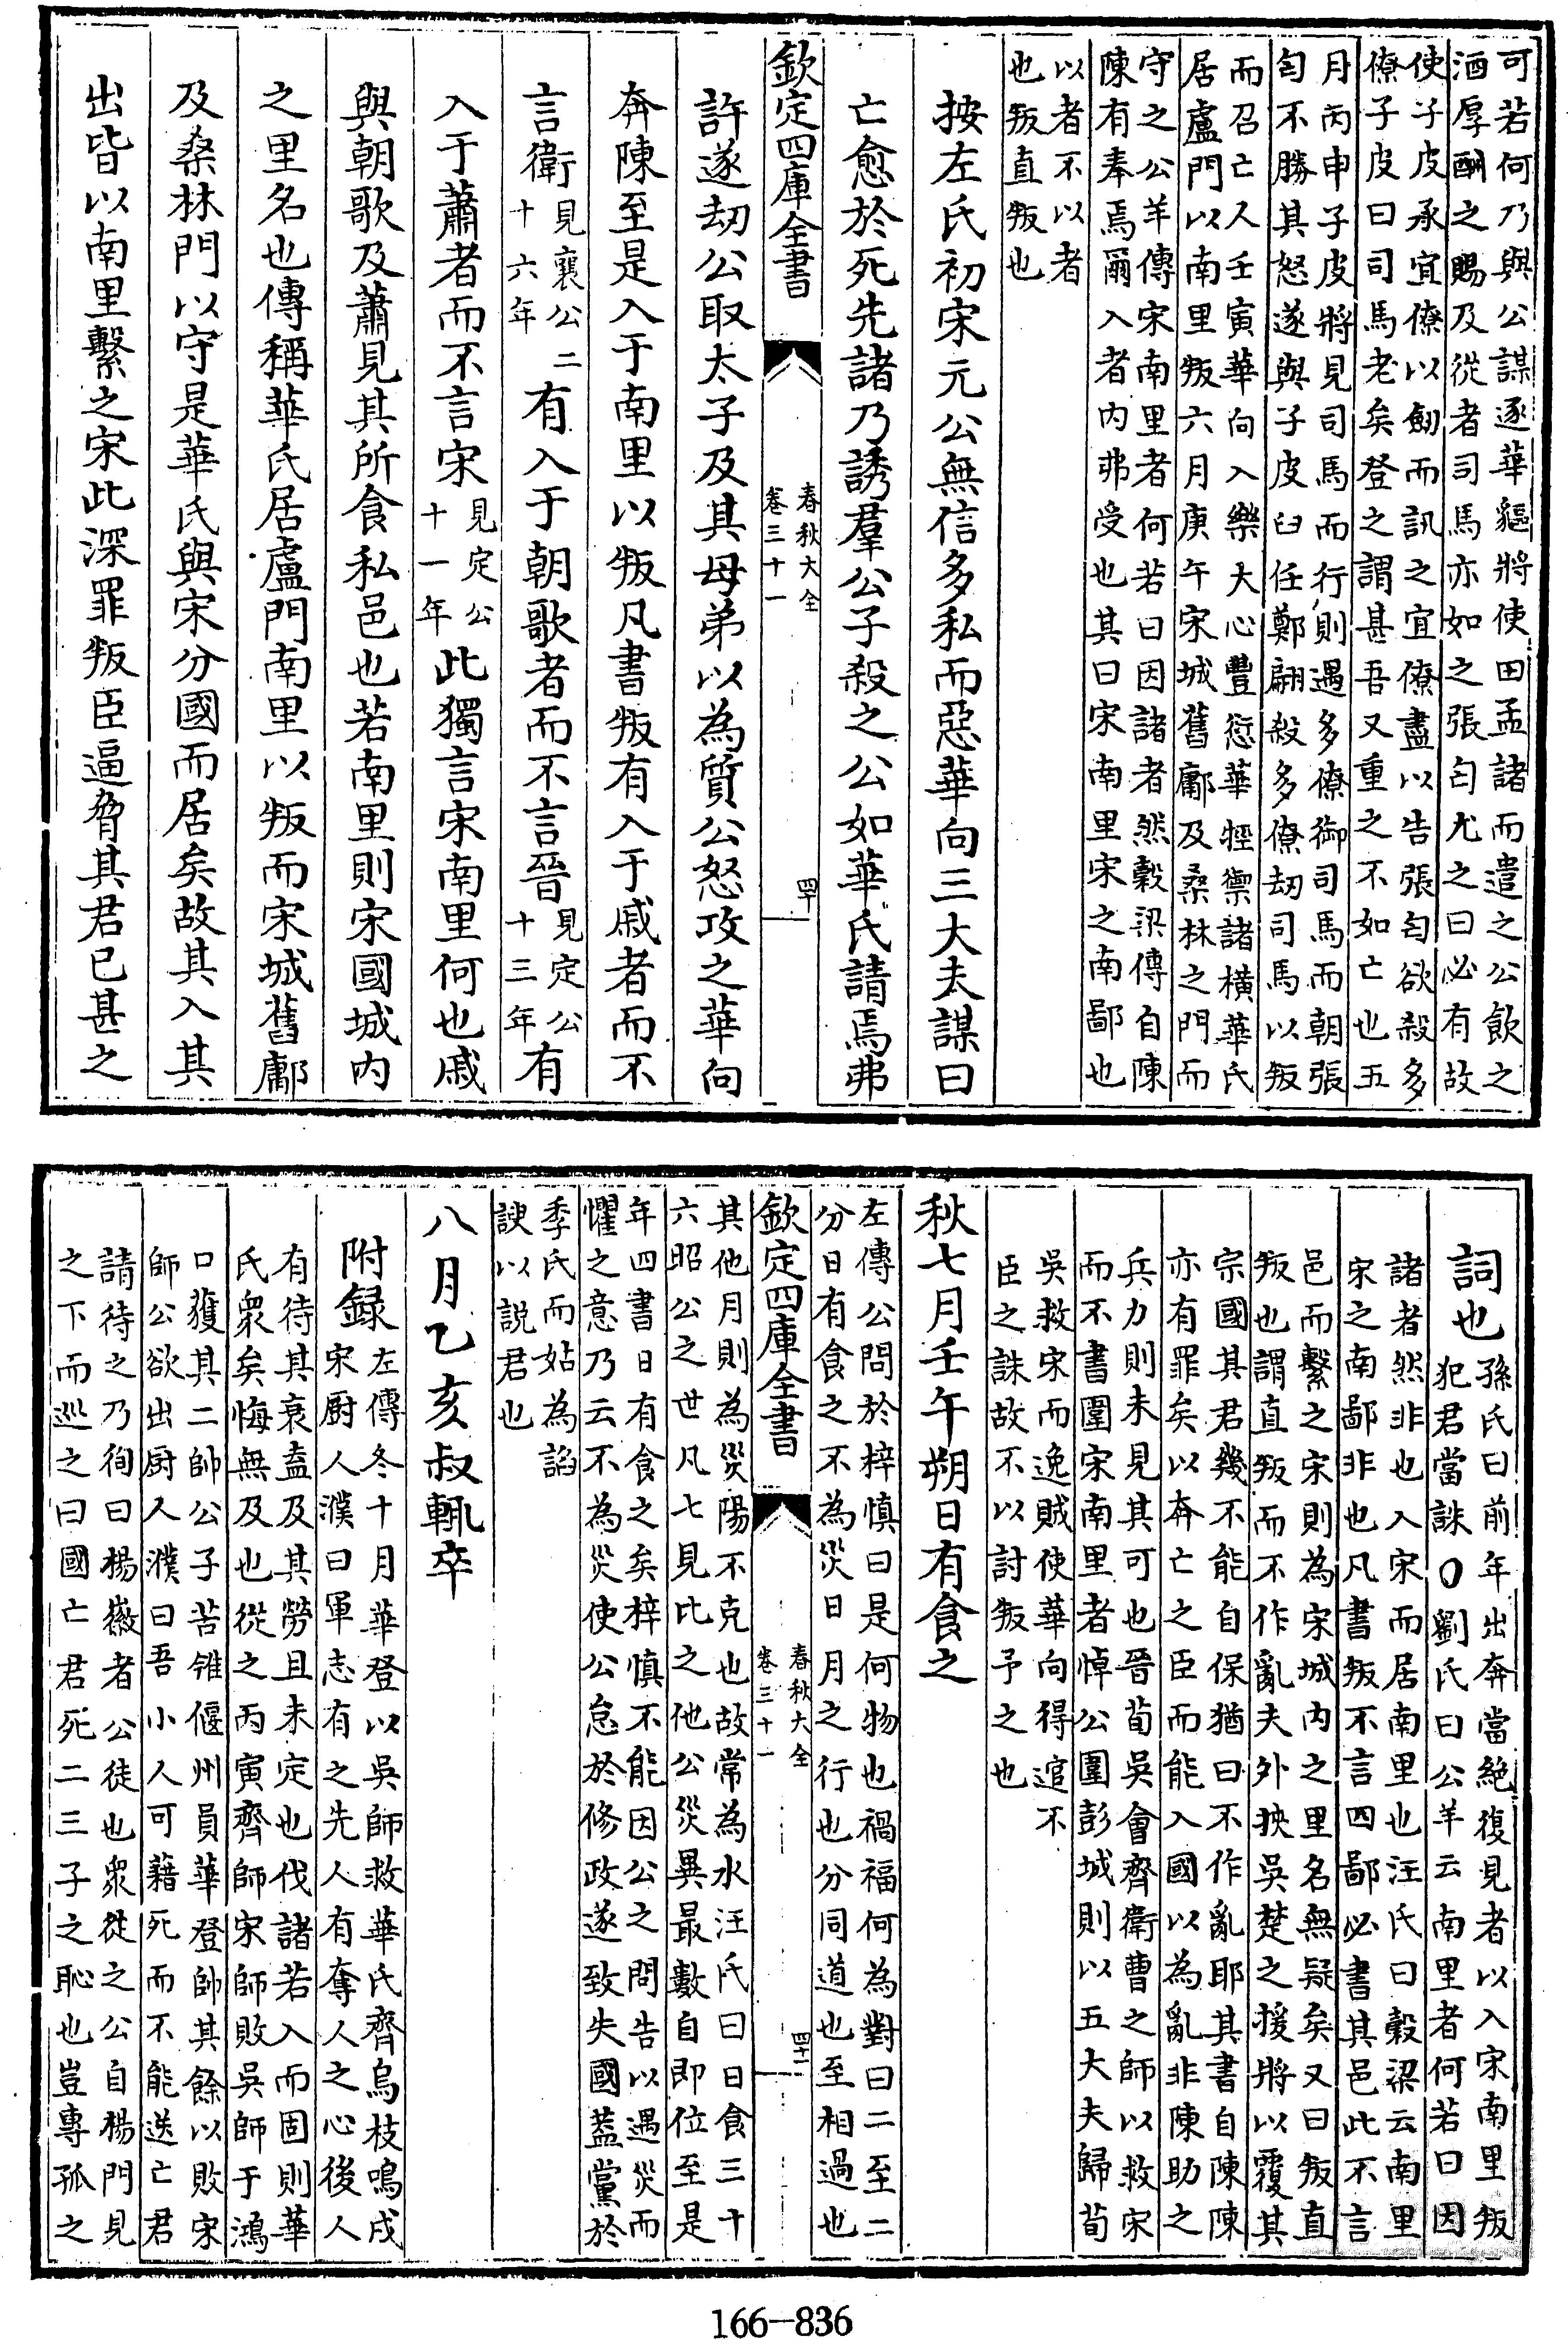 可若何乃與公謀逐華貙將使田孟諸而遣之公飲之
酒厚酬之賜及從者司馬亦如之張匄尤之曰必有故
使子皮承宜僚以劒而訊之宜僚盡以告張匄欲殺多
僚子皮曰司馬老矣登之謂甚吾又重之不如亡也五
月丙申子皮將見司馬而行則遇多僚御司馬而朝張
匄不勝其怒遂與子皮臼任鄭翩殺多僚刼司馬以叛
而召亡人壬寅華向入樂大心豐愆華牼禦諸橫華氏
居盧門以南里叛六月庚午宋城舊鄘及桑林之門而
守之公羊傳宋南里者何若曰因諸者然榖梁傳自陳
陳有奉焉爾入者内弗受也其曰宋南里宋之南鄙也
以者不以者
也叛直叛也
按左氏初宋元公無信多私而惡華向三大夫謀曰
亡愈於死先諸乃誘羣公子殺之公如華氏請焉弗
欽定四庫全書
春秋大全
卷三十一
四十
許遂刼公取太子及其母弟以為質公怒攻之華向
奔陳至是入于南里以叛凡書叛有入于戚者而不
言衛見襄公二十六年有入于朝歌者而不言晉見定公十三年有
入于蕭者而不言宋見定公十一年此獨言宋南里何也戚
與朝歌及蕭見其所食私邑也若南里則宋國城内
之里名也傳稱華氏居盧門南里以叛而宋城舊鄘
及桑林門以守是華氏與宋分國而居矣故其入其
出皆以南里繫之宋此深罪叛臣逼脅其君已甚之
詞也孫氏曰前年出奔當絶復見者以入宋南里叛
犯君當誅○劉氏曰公羊云南里者何若曰因
諸者然非也入宋而居南里也汪氏曰榖梁云南里
宋之南鄙非也凡書叛不言四鄙必書其邑此不言
邑而繫之宋則為宋城内之里名無疑矣又曰叛直
叛也謂直叛而不作亂夫外挾吳楚之援將以覆其
宗國其君幾不能自保猶曰不作亂耶其書自陳陳
亦有罪矣以奔亡之臣而能入國以為亂非陳助之
兵力則未見其可也晉荀吳會齊衛曹之師以救宋
而不書圍宋南里者悼公圍彭城則以五大夫歸荀
吳救宋而逸賊使華向得逭不
臣之誅故不以討叛予之也
秋七月壬午朔日有食之
左傳公問於梓慎曰是何物也禍福何為對曰二至二
分日有食之不為災日月之行也分同道也至相過也
欽定四庫全書
春秋大全
卷三十一
四十一
其他月則為災陽不克也故常為水汪氏曰日食三十
六昭公之世凡七見比之他公災異最數自即位至是
年四書日有食之矣梓慎不能因公之問告以遇災而
懼之意乃云不為災使公怠於修政遂致失國葢黨於
季氏而姑為諂
諛以說君也
八月乙亥叔輒卒
附録左傳冬十月華登以吳師救華氏齊烏枝鳴戍
宋厨人濮曰軍志有之先人有奪人之心後人
有待其衰盍及其勞且未定也伐諸若入而固則華
氏衆矣悔無及也從之丙寅齊師宋師敗吳師于鴻
口獲其二帥公子苦雂偃州員華登帥其餘以敗宋
師公欲出厨人濮曰吾小人可藉死而不能送亡君
請待之乃徇曰楊徽者公徒也衆從之公自楊門見
之下而巡之曰國亡君死二三子之恥也豈專孤之
166—836